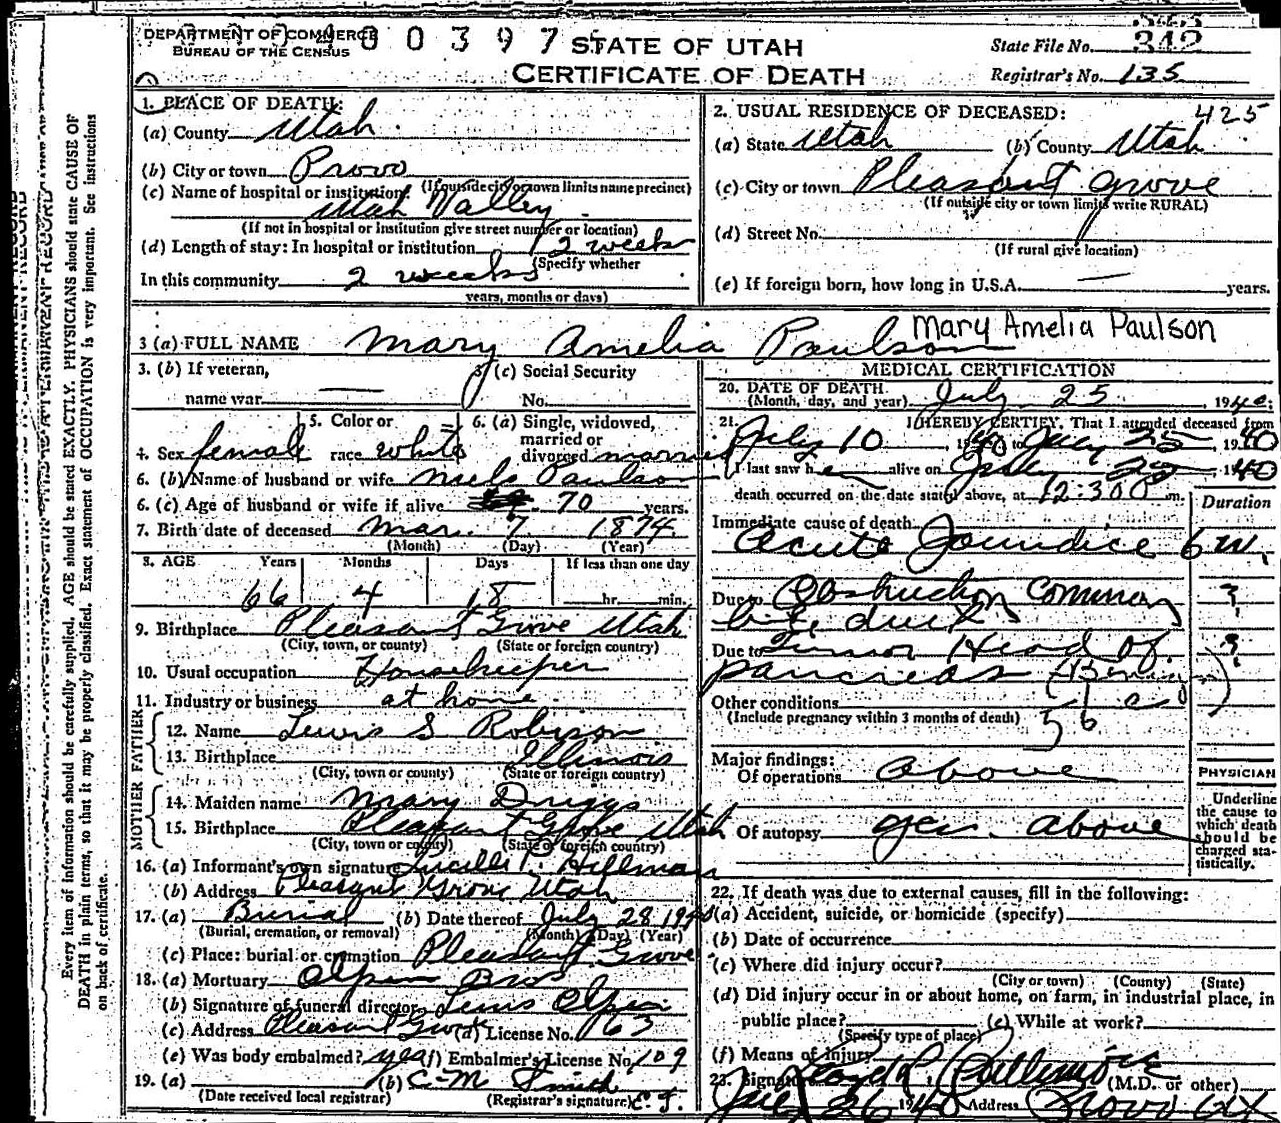 DEPARTMENT OF COMMERCE
BUREAU OF THE CENSUS
400397
STATE OF UTAH
CERTIFICATE OF DEATH
State File No. 342
Registrar's No. 135
1. PLACE OF DEATH:
(a) County Utah
(b) City or town Provo
(If outside city or town limits name precinct)
(c) Name of hospital or institution:
Utah Valley
(If not in hospital or institution give street number or location)
(d) Length of stay: In hospital or institution 2 weeks
(Specify whether
In this community 2 weeks
years, months or days)
2. USUAL RESIDENCE OF DECEASED: 425
(a) State Utah (b) County Utah
(c) City or town Pleasant Grove
(If outside city or town limits write RURAL)
(d) Street No.
(If rural give location)
(e) If foreign born, how long in U.S.A. — years.
3 (a) FULL NAME Mary Amelia Paulson Mary Amelia Paulson
3. (b) If veteran,
name war —
3 (c) Social Security
No.
4. Sex female
5. Color or
race white
6. (a) Single, widowed,
married or
divorced married
6. (b) Name of husband or wife Niels Paulson
6. (c) Age of husband or wife if alive 70 years.
7. Birth date of deceased Mar. 7 1874
(Month) (Day) (Year)
8. AGE Years Months Days If less than one day
66 4 18 hr. min.
9. Birthplace Pleasant Grove Utah
(City, town, or county) (State or foreign country)
10. Usual occupation Housekeeper
11. Industry or business at home
FATHER
12. Name Lewis S Robison
13. Birthplace Illinois
(City, town or county) (State or foreign country)
MOTHER
14. Maiden name Mary Driggs
15. Birthplace Pleasant Grove Utah
(City, town or county) (State or foreign country)
16. (a) Informant's own signature Lucille P. Hillman
(b) Address Pleasant Grove Utah
17. (a) Burial (b) Date thereof July 28 1940
(Burial, cremation, or removal) (Month) (Day) (Year)
(c) Place: burial or cremation Pleasant Grove
18. (a) Mortuary Olpin Bros
(b) Signature of funeral director Lewis Olpin
(c) Address Pleasant Grove (d) License No. 163
(e) Was body embalmed? yes (f) Embalmer's License No. 109
19. (a) (b) C.M Smith
(Date received local registrar) (Registrar's signature) E.J.
MEDICAL CERTIFICATION
20. DATE OF DEATH
(Month, day, and year) July 25, 1940
21. I HEREBY CERTIFY, That I attended deceased from
July 10, 1940 to July 25, 1940
I last saw h alive on July 25, 1940
death occurred on the date stated above, at 12:30 m.
Duration
Immediate cause of death
Acute Jaundice 6 w.
Due to Obstruction common ?
bile duct
Due to Tumor Head of ?
pancreas
Other conditions
(Include pregnancy within 3 months of death)
Major findings:
Of operations above
Of autopsy yes. above
PHYSICIAN
Underline
the cause to
which death
should be
charged sta-
tistically.
22. If death was due to external causes, fill in the following:
(a) Accident, suicide, or homicide (specify)
(b) Date of occurrence
(c) Where did injury occur?
(City or town) (County) (State)
(d) Did injury occur in or about home, on farm, in industrial place, in
public place? (e) While at work?
(Specify type of place)
(f) Means of injury
23. Signature Cullimore (M.D. or other)
July 26 1940 Address Provo Ut
Every item of information should be carefully supplied. AGE should be stated EXACTLY. PHYSICIANS should state CAUSE OF
DEATH in plain terms, so that it may be properly classified. Exact statement of OCCUPATION is very important. See instructions
on back of certificate.